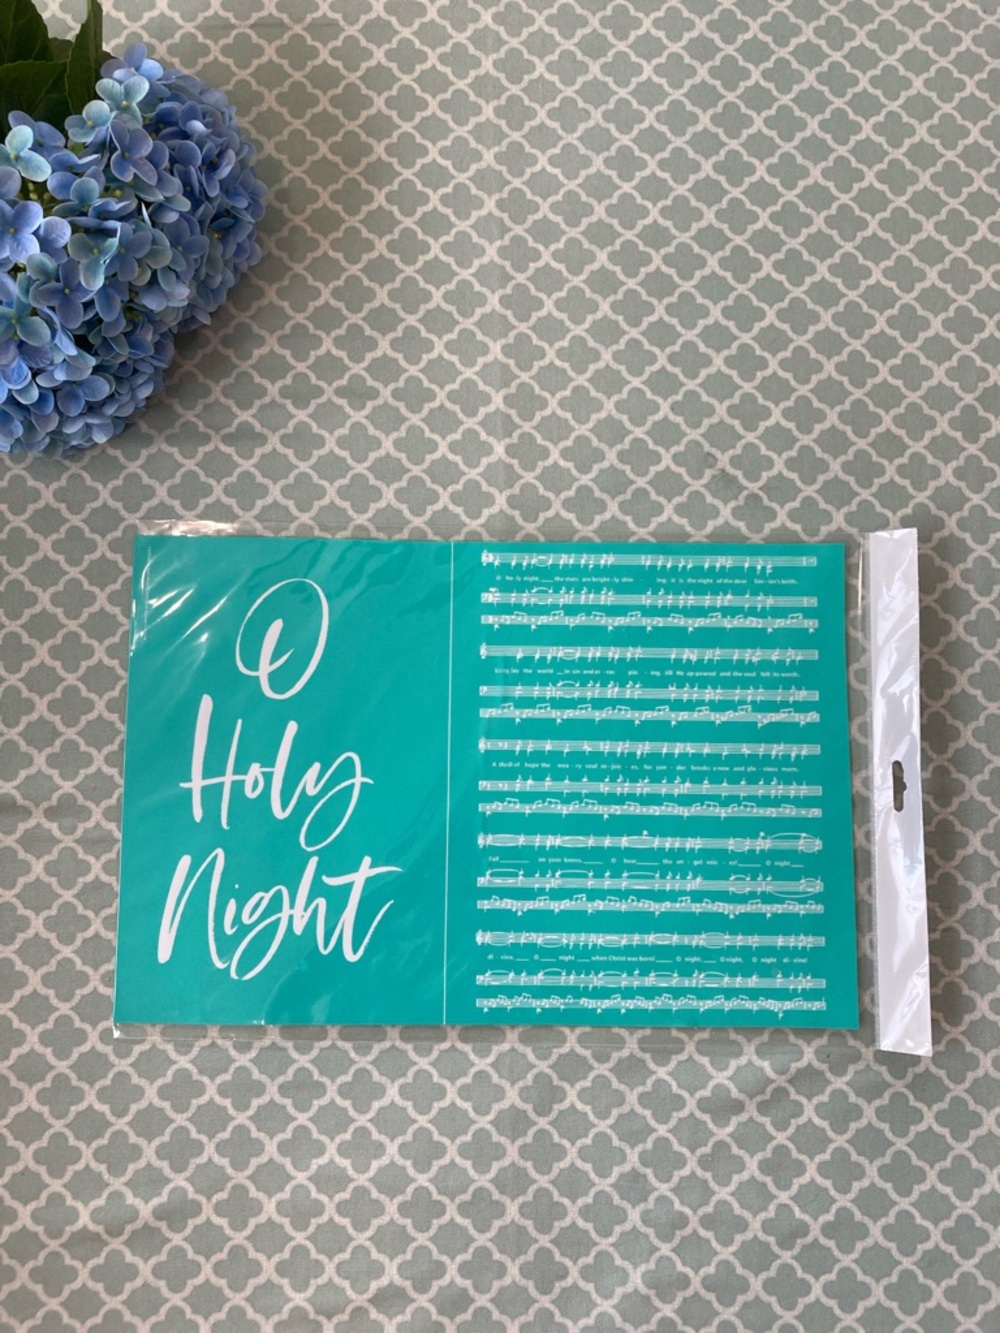 O
Holy
Night
O Ho-ly night, ___ the stars are bright-ly shin - ing; it is the night of the dear Sav-ior's birth.
Long lay the world __ in sin and er-ror pin - ing, till He ap-peared and the soul felt its worth.
A thrill of hope the wea-ry soul re-joic-es, for yon-der breaks a new and glo-rious morn.
Fall ______ on your knees, ____ O hear, ____ the an-gel voic-es! ____ O night ___
di-vine, ___ O ___ night ___ when Christ was born! ___ O night, ___ O night, O night di-vine!